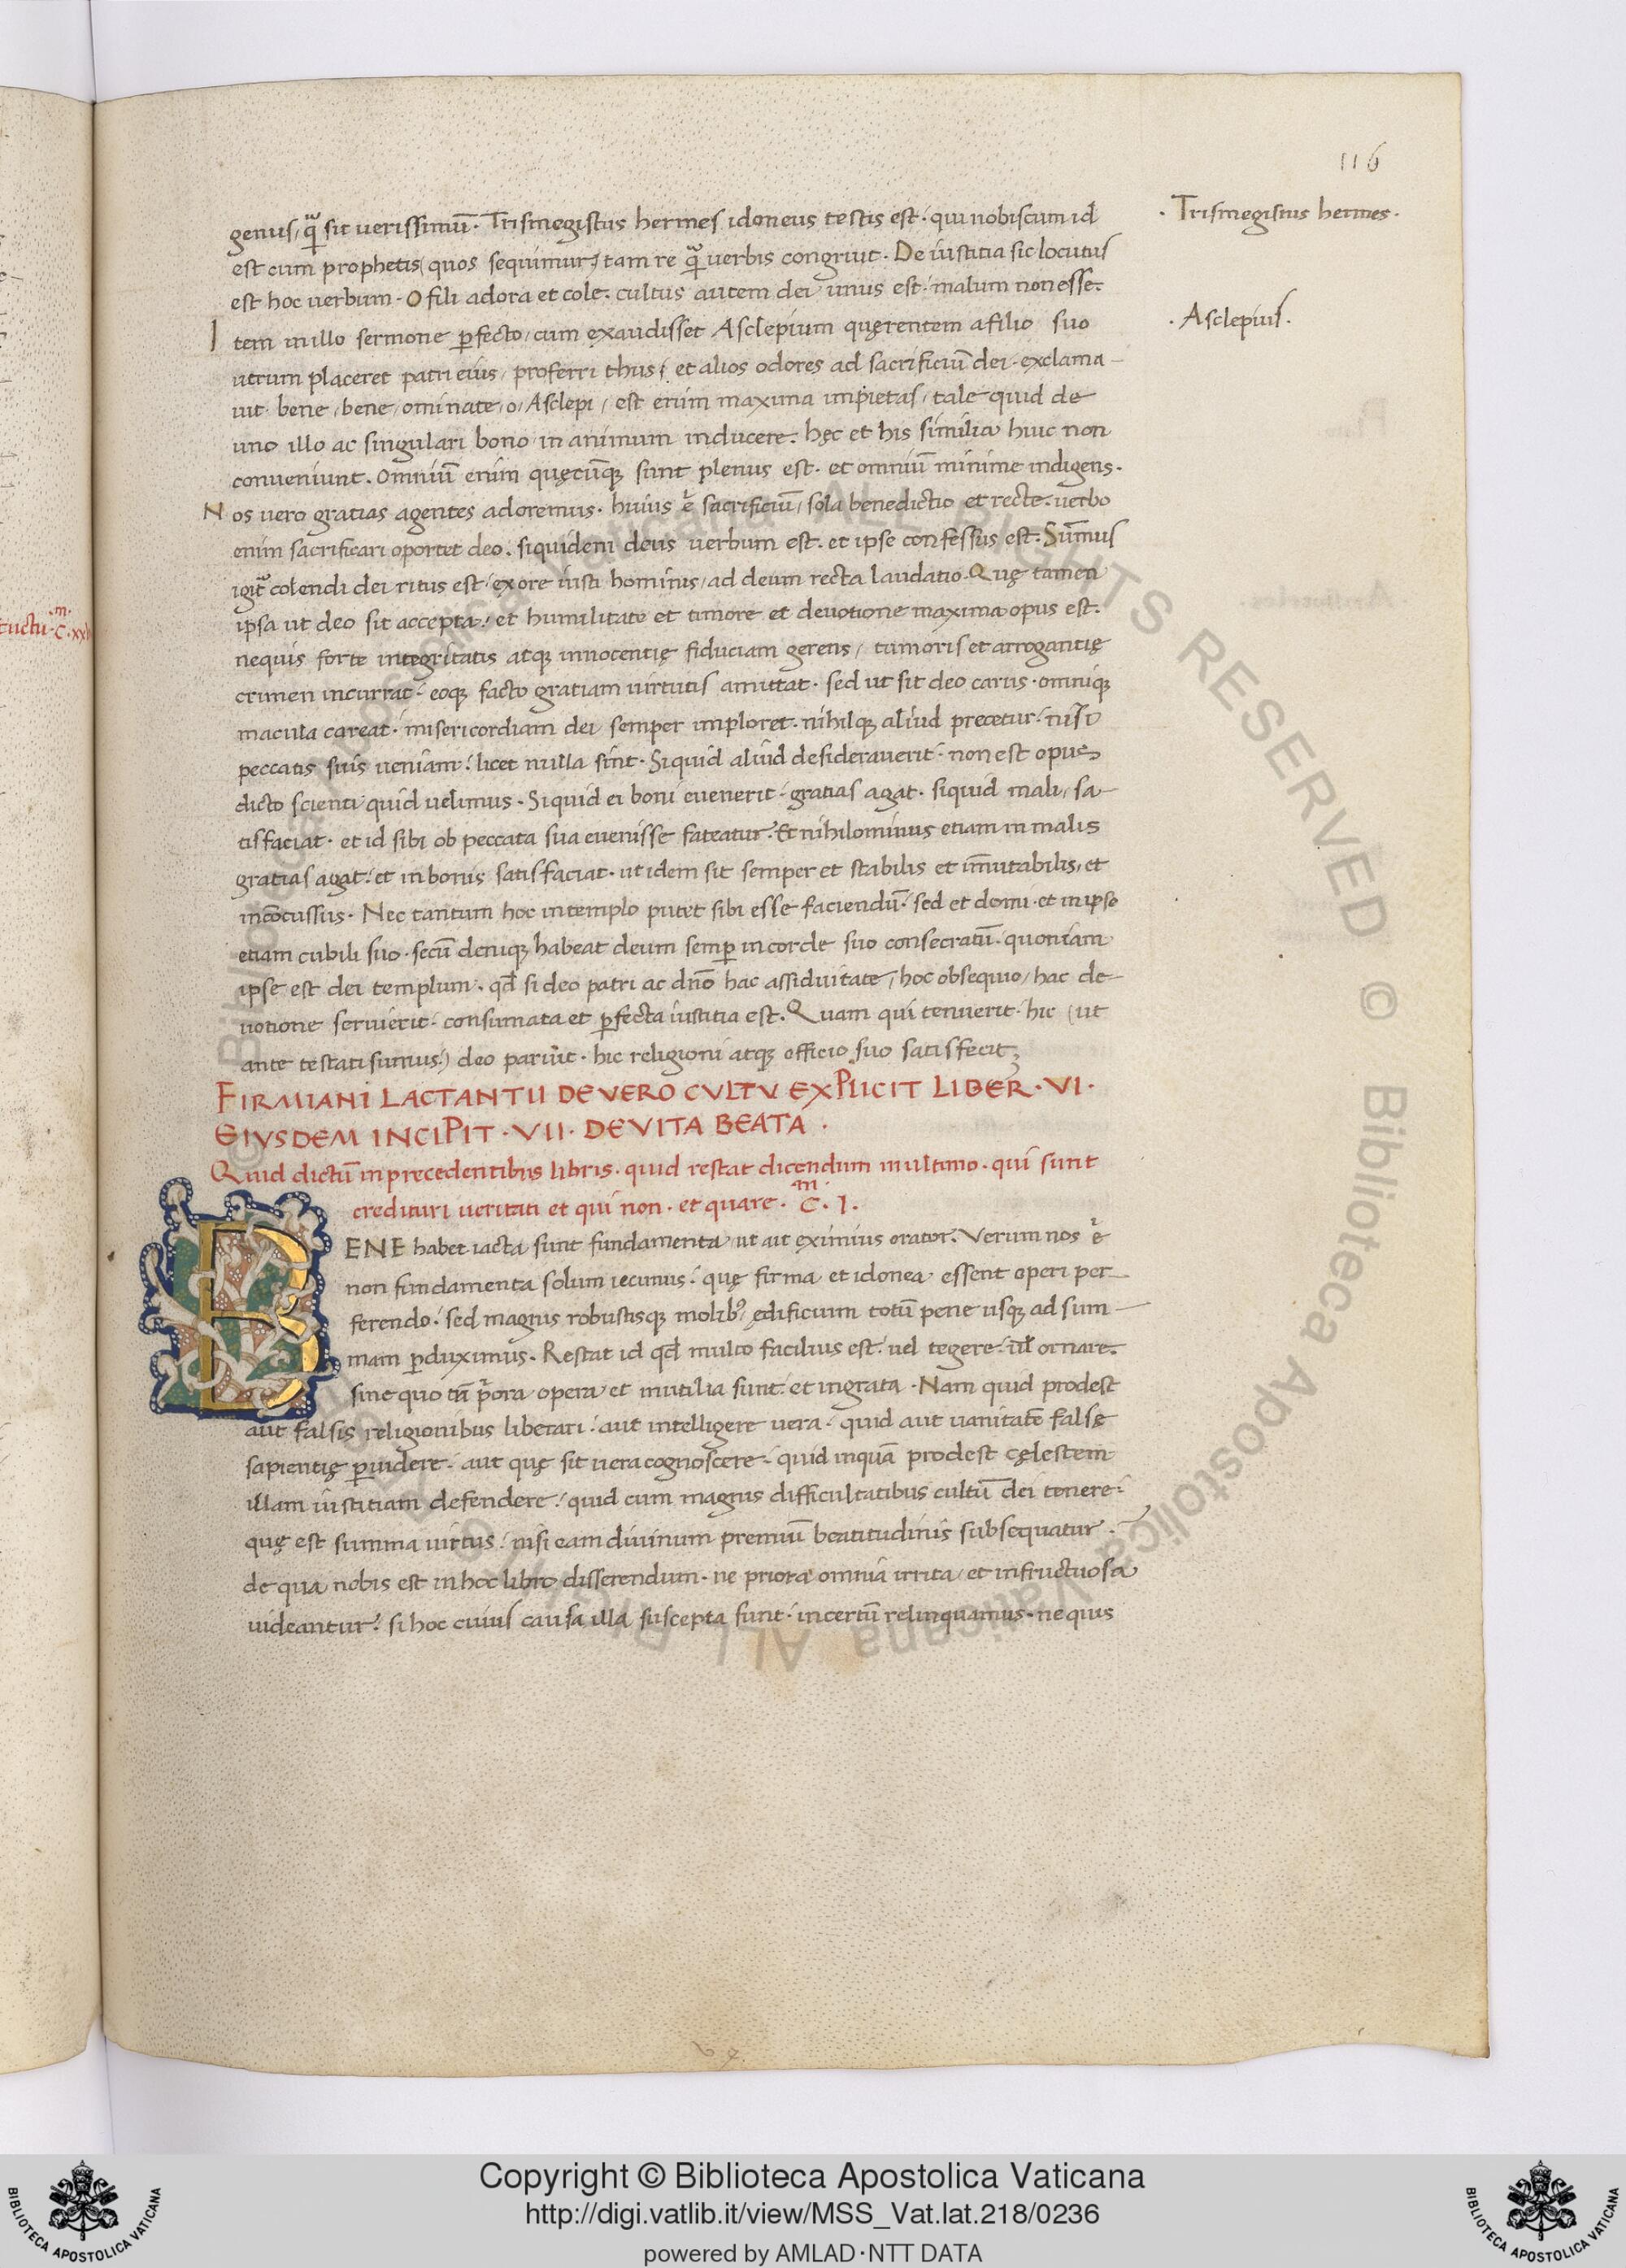 116
genus, qͣ sit uerissimū. Trismegistus hermes idoneus testis est. qui nobiscum id
· Trismegistus hermes ·
est cum prophetis, quos sequimur, tam re qͣ uerbis congruit. De iustitia sic locutus
est hoc uerbum. O fili adora et cole. cultus autem dei unus est. malum non esse.
Item in illo sermone ꝑfecto, cum exaudisset Asclepium quęrentem a filio suo
· Asclepius ·
utrum placeret patri eius, proferri thus, et alios odores ad sacrificiū dei. exclama-
uit. bene, bene, ominate, o, Asclepi, est enim maxima impietas, tale quid de
uno illo ac singulari bono in animum inducere. hęc et his similia huic non
conueniunt. Omniū enim quęcūqꝫ sunt plenus est. et omniū minime indigens.
Nos uero gratias agentes adoremus. huius ē sacrificiū, sola benedictio et recte. uerbo
enim sacrificari oportet deo. siquidem deus uerbum est. et ipse confessus est. Sūmus
igit᷑ colendi dei ritus est, ex ore iusti hominis, ad deum recta laudatio. Quę tamen
ipsa ut deo sit accepta, et humilitate et timore et deuotione maxima opus est.
nequis forte integritatis atqꝫ innocentię fiduciam gerens, tumoris et arrogantię
crimen incurrat. eoqꝫ facto gratiam uirtutis amittat. sed ut sit deo carus. omniqꝫ
macula careat. misericordiam dei semper imploret. nihilqꝫ aliud precetur. nisi
peccatis suis ueniam. licet nulla sint. Siquid aliud desiderauerit. non est opus
dicto scienti quid uelimus. Siquid ei boni euenerit. gratias agat. siquid mali, sa-
tisfaciat. et id sibi ob peccata sua euenisse fateatur. Et nihilominus etiam in malis
gratias agat. et in bonis satisfaciat. ut idem sit semper et stabilis et īmutabilis, et
incōcussus. Nec tantum hoc in templo putet sibi esse faciendū. sed et domi. et in ipso
etiam cubili suo. secū deniqꝫ habeat deum semꝑ in corde suo consecratū. quoniam
ipse est dei templum. qđ si deo patri ac dn̄o hac assiduitate, hoc obsequio, hac de-
uotione seruierit. consumata et ꝑfecta iustitia est. Quam qui tenuerit. hic (ut
ante testati sumus) deo paruit. hic religioni atqꝫ officio suo satisfecit;
FIRMIANI LACTANTII DE VERO CVLTV EXPLICIT LIBER · VI ·
EIVSDEM INCIPIT · VII · DE VITA BEATA ·
Quid dictū in precedentibus libris. quid restat dicendum in ultimo. qui sunt
credituri ueritati et qui non. et quare. C.ͫ I.
BENE habet iacta sunt fundamenta, ut ait eximius orator. Verum nos ē
non fundamenta solum iecimus. quę firma et idonea essent operi per-
ferendo. sed magnis robustisqꝫ molibꝰ ędificium totū pene usqꝫ ad sum-
mam ꝑduximus. Restat id qđ multo facilius est. uel tegere. uł ornare.
sine quo tn̄ p͛ora opera et mutilia sunt. et ingrata. Nam quid prodest
aut falsis religionibus liberari. aut intelligere uera. quid aut uanitatē falsę
sapientię ꝑuidere. aut quę sit uera cognoscere. quid inquā prodest cęlestem
illam iustitiam defendere. quid cum magnis difficultatibus cultū dei tenere.
quę est summa uirtus. nisi eam diuinum premiū beatitudinis subsequatur.
de qua nobis est in hoc libro disserendum. ne priora omnia irrita, et infructuosa
uideantur. si hoc cuius causa illa suscepta sunt. incertū relinquamus. ne quis
Copyright © Biblioteca Apostolica Vaticana
http://digi.vatlib.it/view/MSS_Vat.lat.218/0236
powered by AMLAD·NTT DATA
BIBLIOTECA APOSTOLICA VATICANA
BIBLIOTECA APOSTOLICA VATICANA
© Biblioteca Apostolica Vaticana ALL RIGHTS RESERVED © Biblioteca Apostolica Vaticana ALL RIGHTS RESERVED